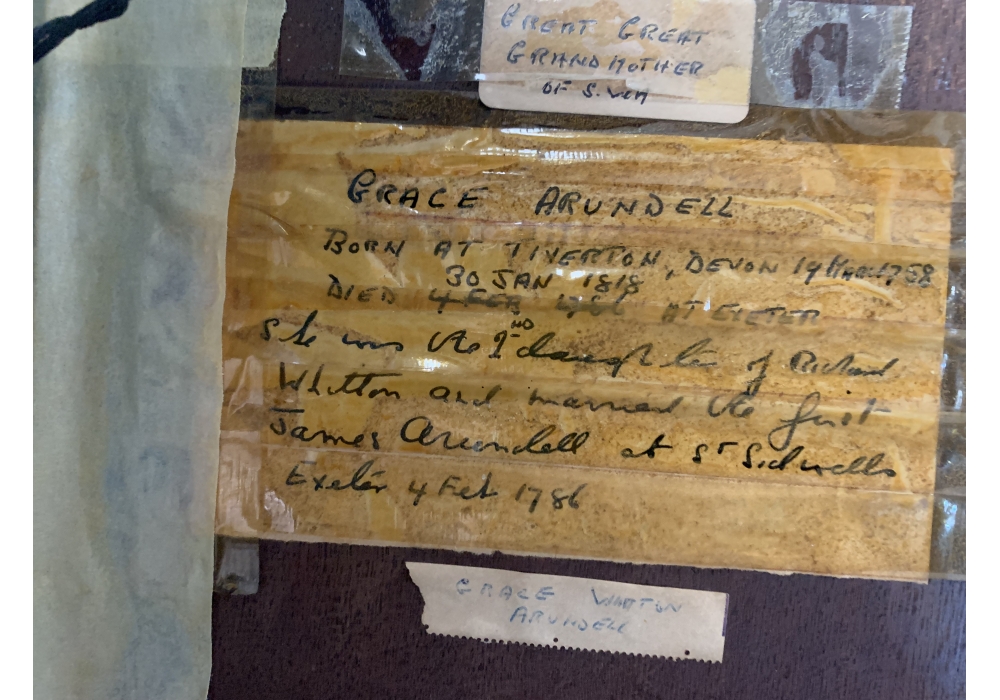 GREAT GREAT
GRANDMOTHER
OF S.
GRACE ARUNDELL
BORN AT TIVERTON, DEVON 19 MAR 1758
30 JAN 1818
DIED 4 FEB 1786 AT EXETER
She was the 2ND daughter of Richard
Whitton and married the first
James Arundell at St Sidwells
Exeter 4 Feb 1786
GRACE WHITTON
ARUNDELL